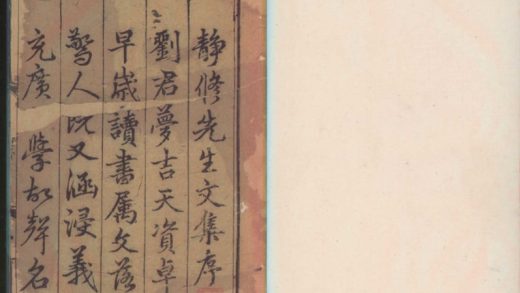 静修先生文集序
劉君夢吉天資卓
早歲讀書属文落
驚人既又涵浸義
充廣 學故聲名